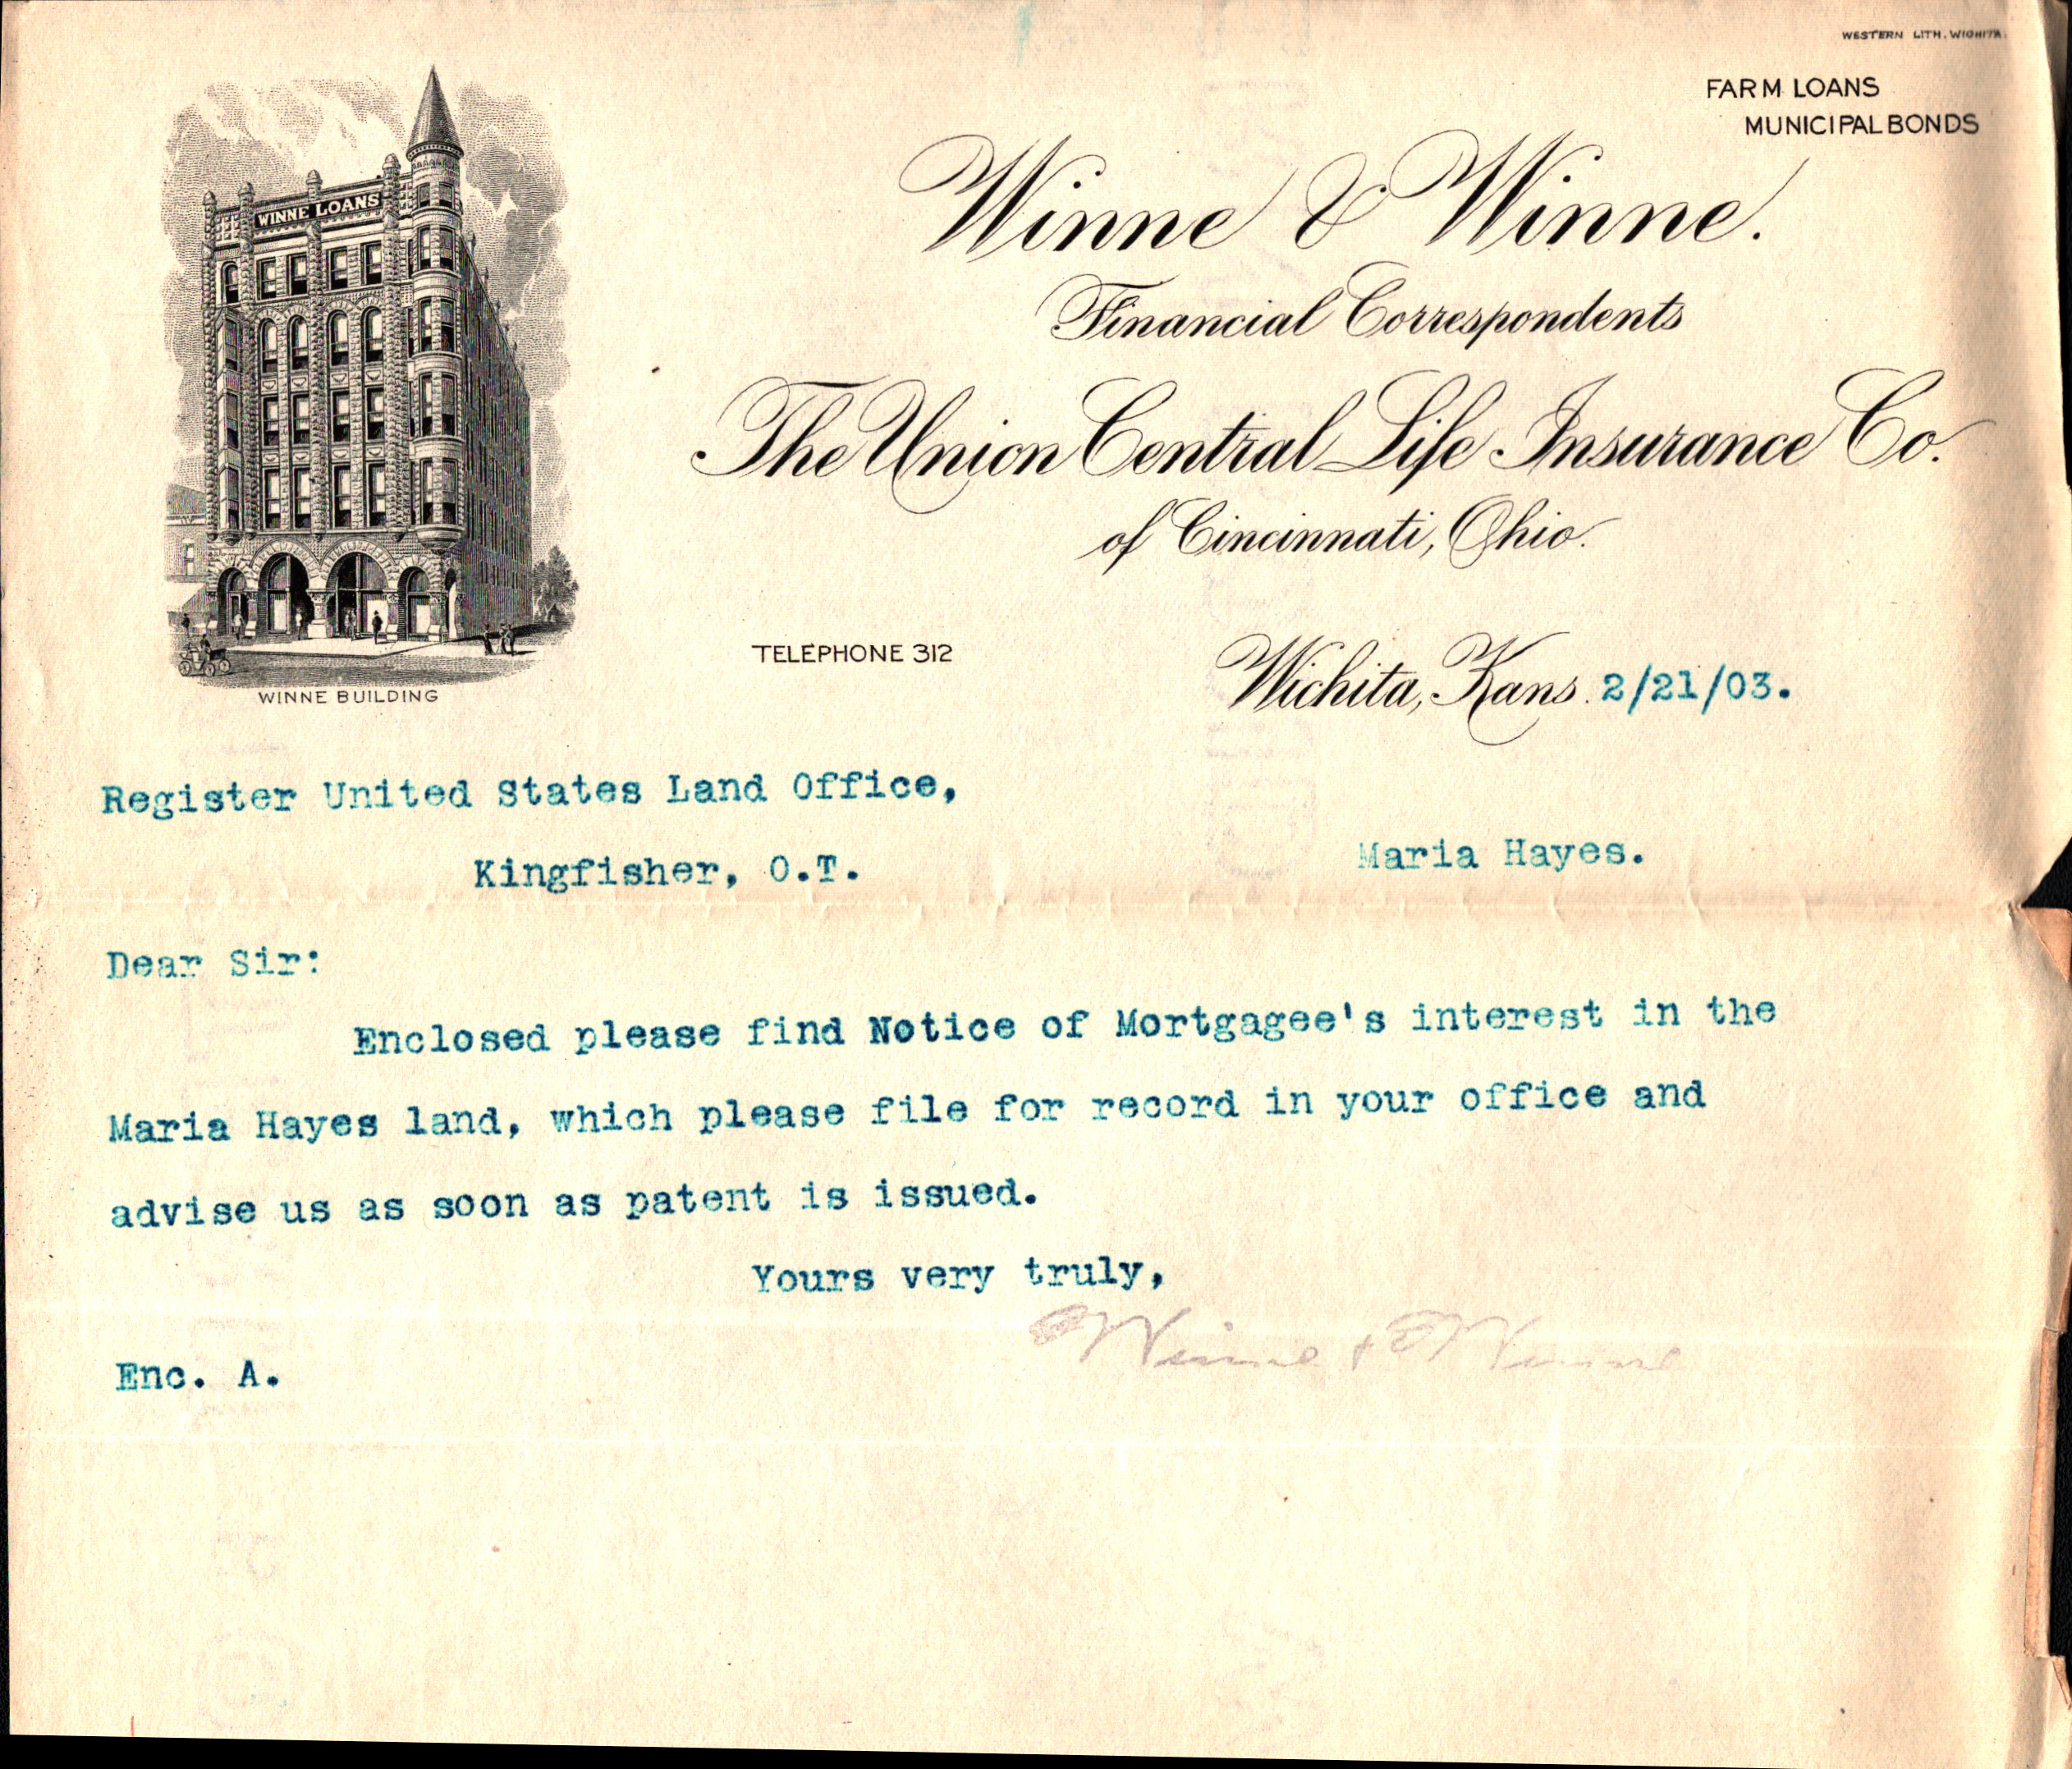 WESTERN LITH. WICHITA.
FARM LOANS
MUNICIPAL BONDS
WINNE LOANS
Winne & Winne.
Financial Correspondents
The Union Central Life Insurance Co.
of Cincinnati, Ohio.
TELEPHONE 312
Wichita, Kans. 2/21/03.
WINNE BUILDING
Register United States Land Office,
Kingfisher, O.T.
Maria Hayes.
Dear Sir:
Enclosed please find Notice of Mortgagee's interest in the
Maria Hayes land, which please file for record in your office and
advise us as soon as patent is issued.
Yours very truly,
Winne & Winne
Enc. A.